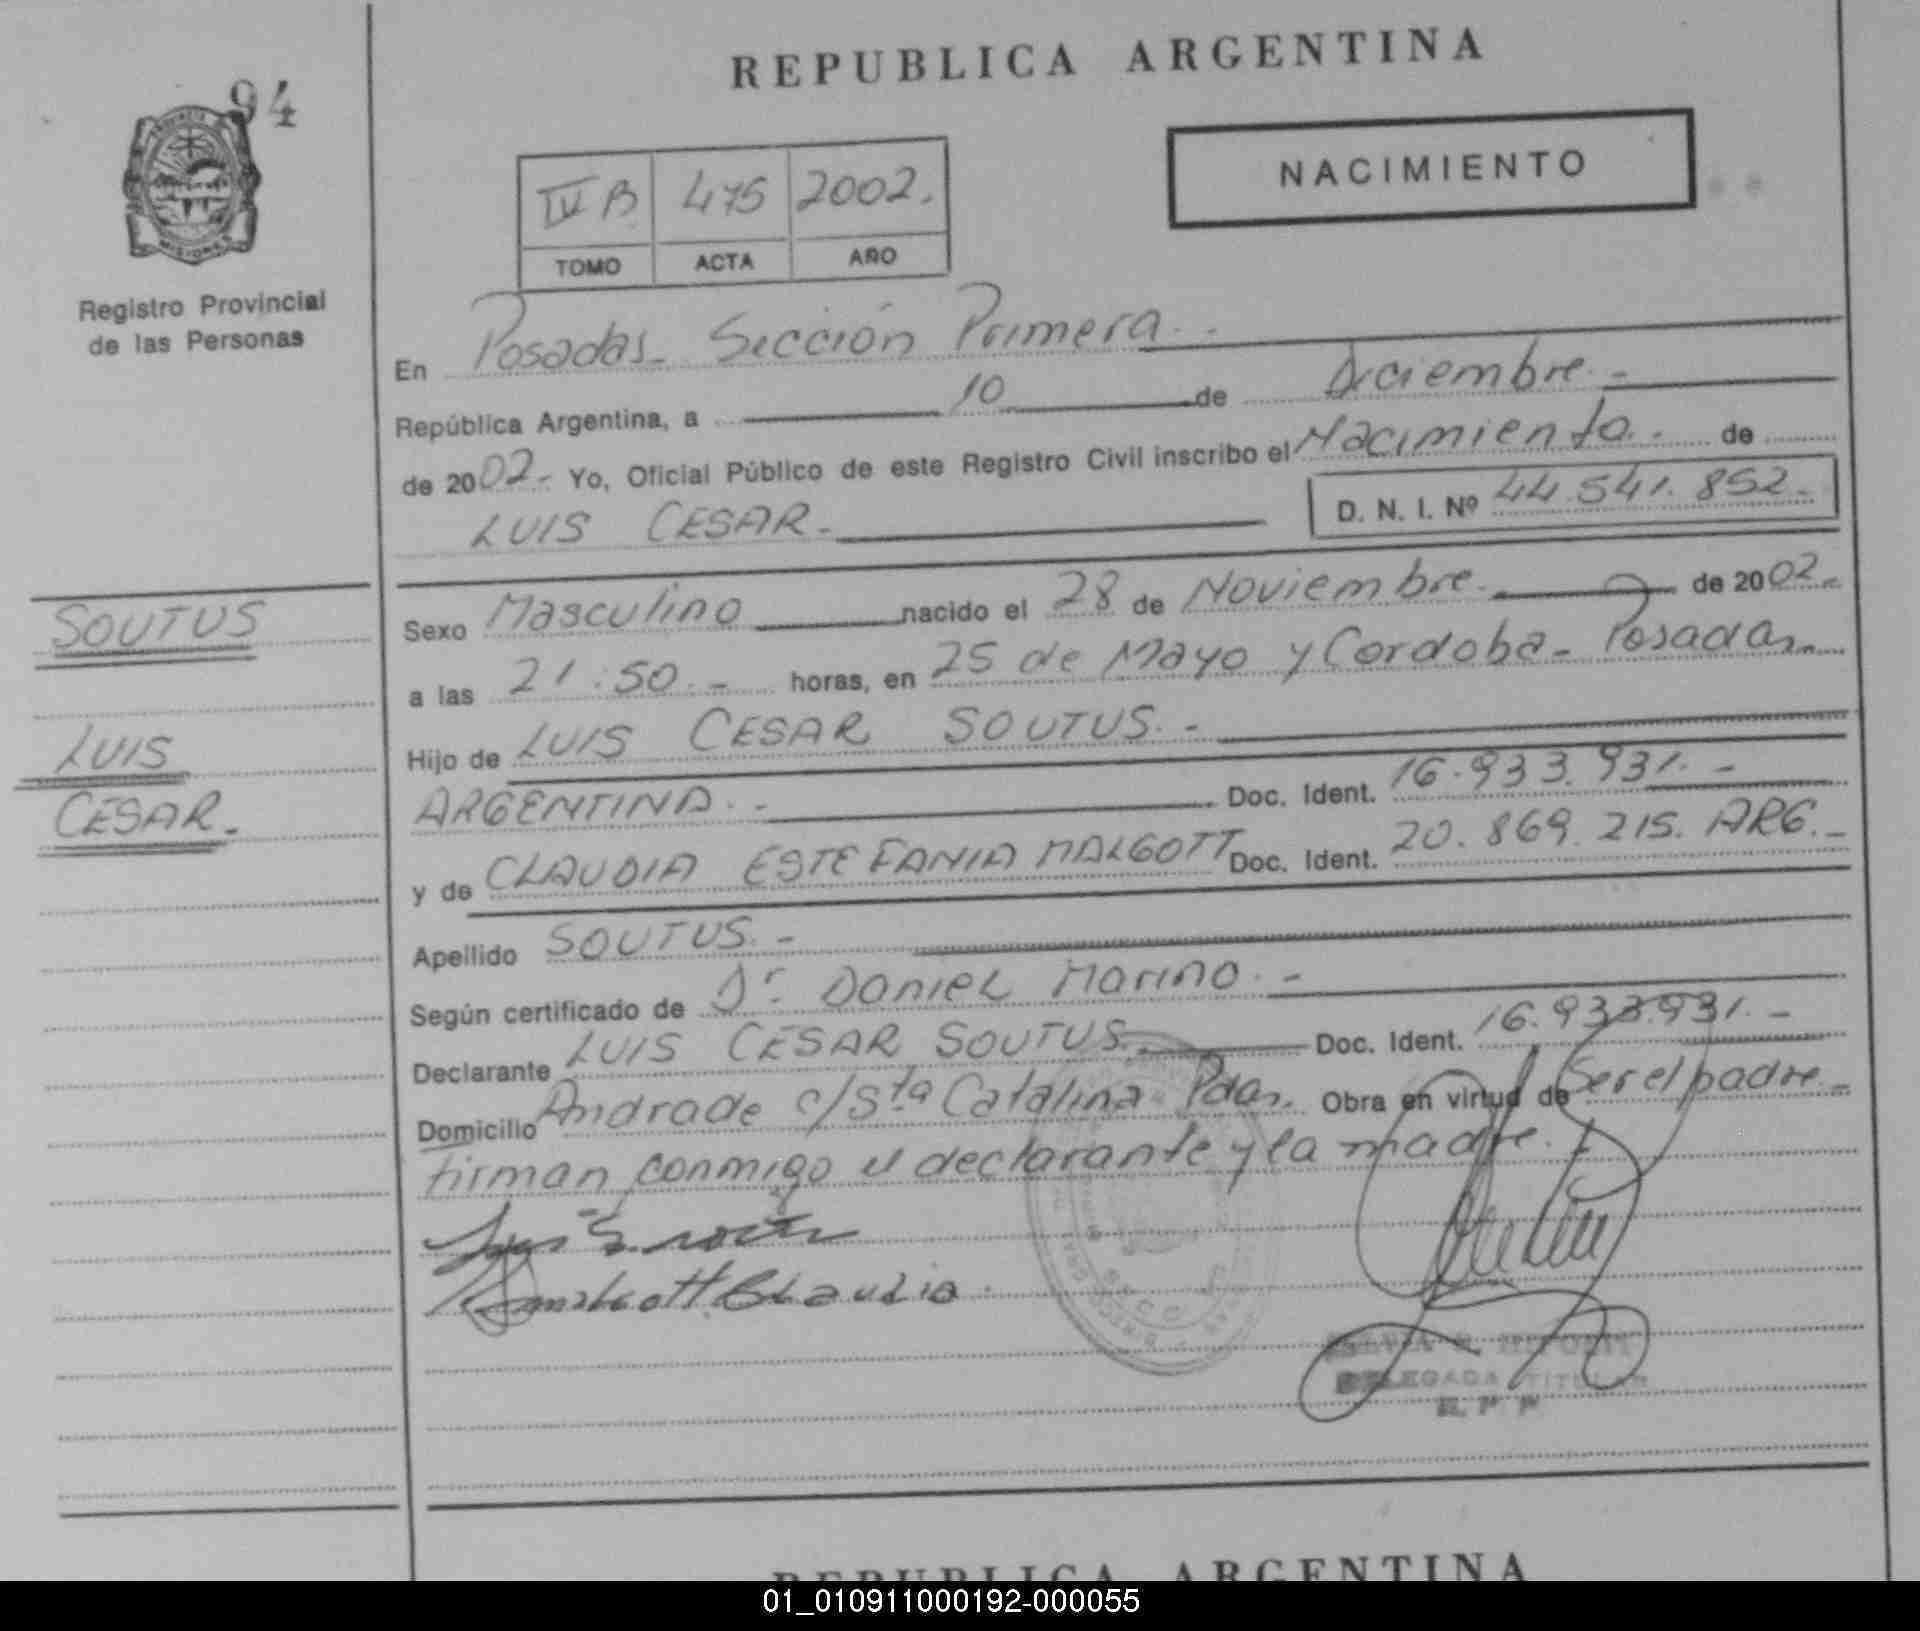 94
REPUBLICA ARGENTINA
NACIMIENTO
IV B 475 2002.
TOMO ACTA AÑO
MISIONES
Registro Provincial
de las Personas
En Posadas - Sección Primera. -
República Argentina, a 10 de Diciembre. -
de 2002.- Yo, Oficial Público de este Registro Civil inscribo el Nacimiento. - de
LUIS CESAR. - D. N. I. Nº 44.541.852.-
SOUTUS
LUIS
CESAR.-
Sexo Masculino nacido el 28 de Noviembre. de 2002.-
a las 21.50.- horas, en 25 de Mayo y Cordoba - Posadas.-
Hijo de LUIS CESAR SOUTUS. -
ARGENTINA. - Doc. Ident. 16.933.931. -
y de CLAUDIA ESTEFANIA MALGOTT Doc. Ident. 20.869.215. ARG.-
Apellido SOUTUS. -
Según certificado de Dr. Daniel Marino. -
Declarante LUIS CESAR SOUTUS. Doc. Ident. 16.933.931. -
Domicilio Andrade c/Sta Catalina Pdas. Obra en virtud de Ser el padre. -
firman conmigo el declarante y la madre. -
Claudia
DELEGADA TITULAR
REPUBLICA ARGENTINA
01_010911000192-000055